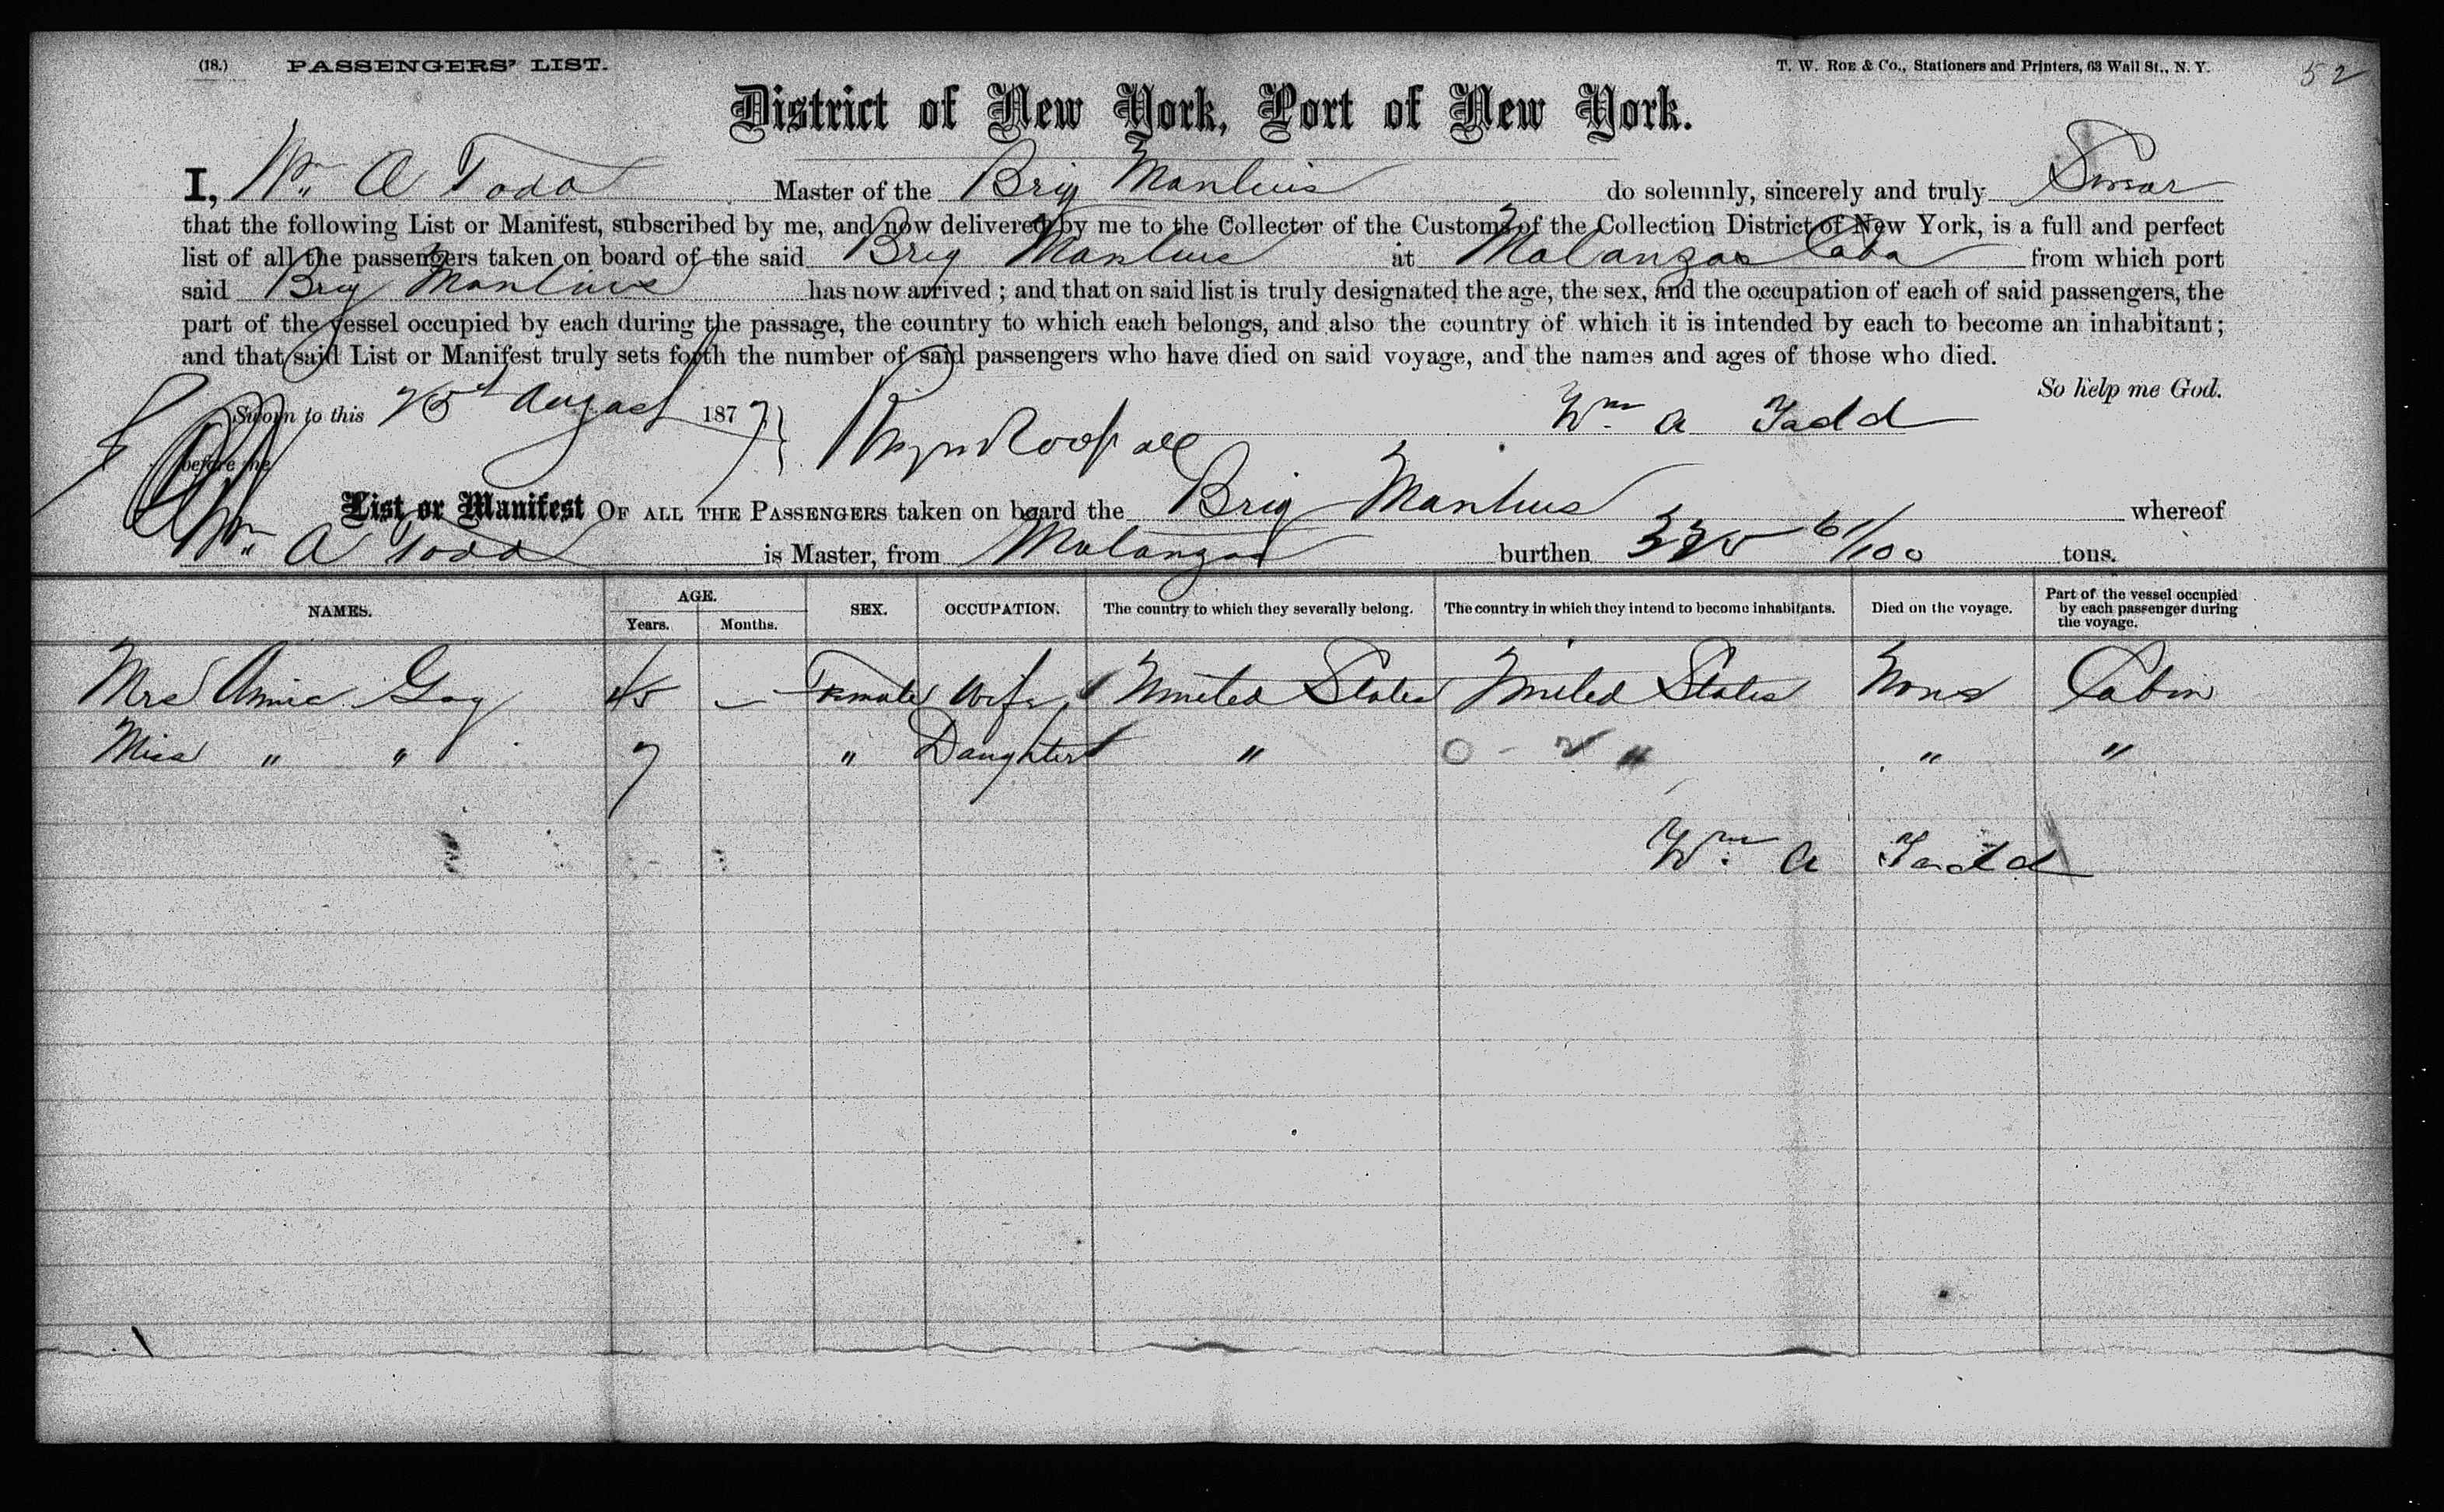 (18.) PASSENGERS' LIST. T. W. ROE & Co., Stationers and Printers, 63 Wall St., N. Y. 52
District of New York, Port of New York.
I, Wm A Todd Master of the Brig Manlius do solemnly, sincerely and truly Swear
that the following List or Manifest, subscribed by me, and now delivered by me to the Collector of the Customs of the Collection District of New York, is a full and perfect
list of all the passengers taken on board of the said Brig Manlius at Matanzas Cuba from which port
said Brig Manlius has now arrived; and that on said list is truly designated the age, the sex, and the occupation of each of said passengers, the
part of the vessel occupied by each during the passage, the country to which each belongs, and also the country of which it is intended by each to become an inhabitant;
and that said List or Manifest truly sets forth the number of said passengers who have died on said voyage, and the names and ages of those who died.
So help me God.
Sworn to this August 1877 Wm A Todd
before me
List or Manifest OF ALL THE PASSENGERS taken on board the Brig Manlius whereof
Wm A Todd is Master, from Matanzas burthen 61/100 tons.
NAMES. AGE. Years. Months. SEX. OCCUPATION. The country to which they severally belong. The country in which they intend to become inhabitants. Died on the voyage. Part of the vessel occupied by each passenger during the voyage.
Mrs Annie Gay 45 — Female Wife United States United States None Cabin
Miss " " 7 " Daughter " " " "
Wm A Todd